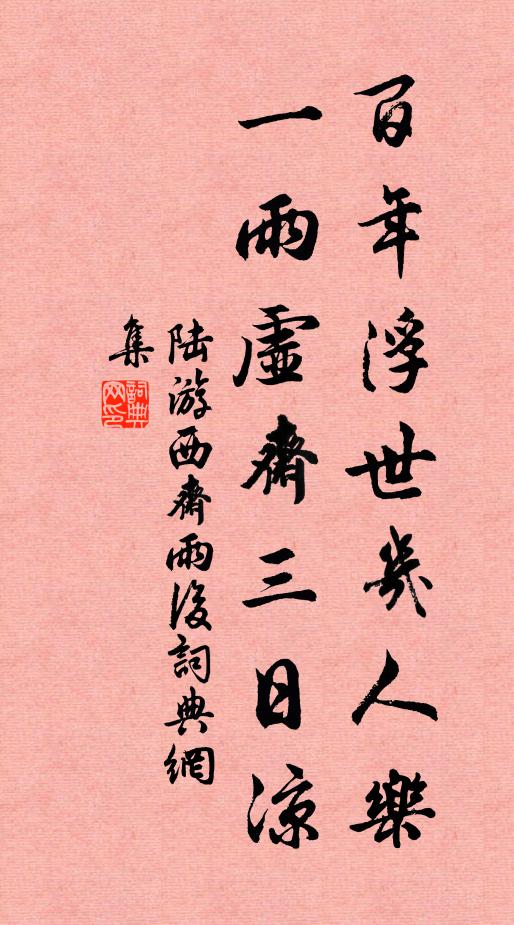 百年浮世幾人樂
一雨虛齋三日涼
陸游西齋雨後詞典網
集
詞典網印